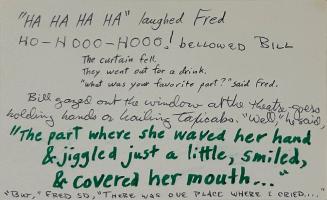 "HA HA HA HA" laughed Fred
HO-HOOO-HOOO! bellowed BILL
The curtain fell.
They went out for a drink.
"what was your favorite part?" said Fred.
Bill gazed out the window at the theatre-goers
holding hands or hailing taxicabs. "Well," he said,
"The part where she waved her hand
& jiggled just a little, smiled,
& covered her mouth..."
"BUT," FRED SD, "THERE WAS ONE PLACE WHERE I CRIED...."